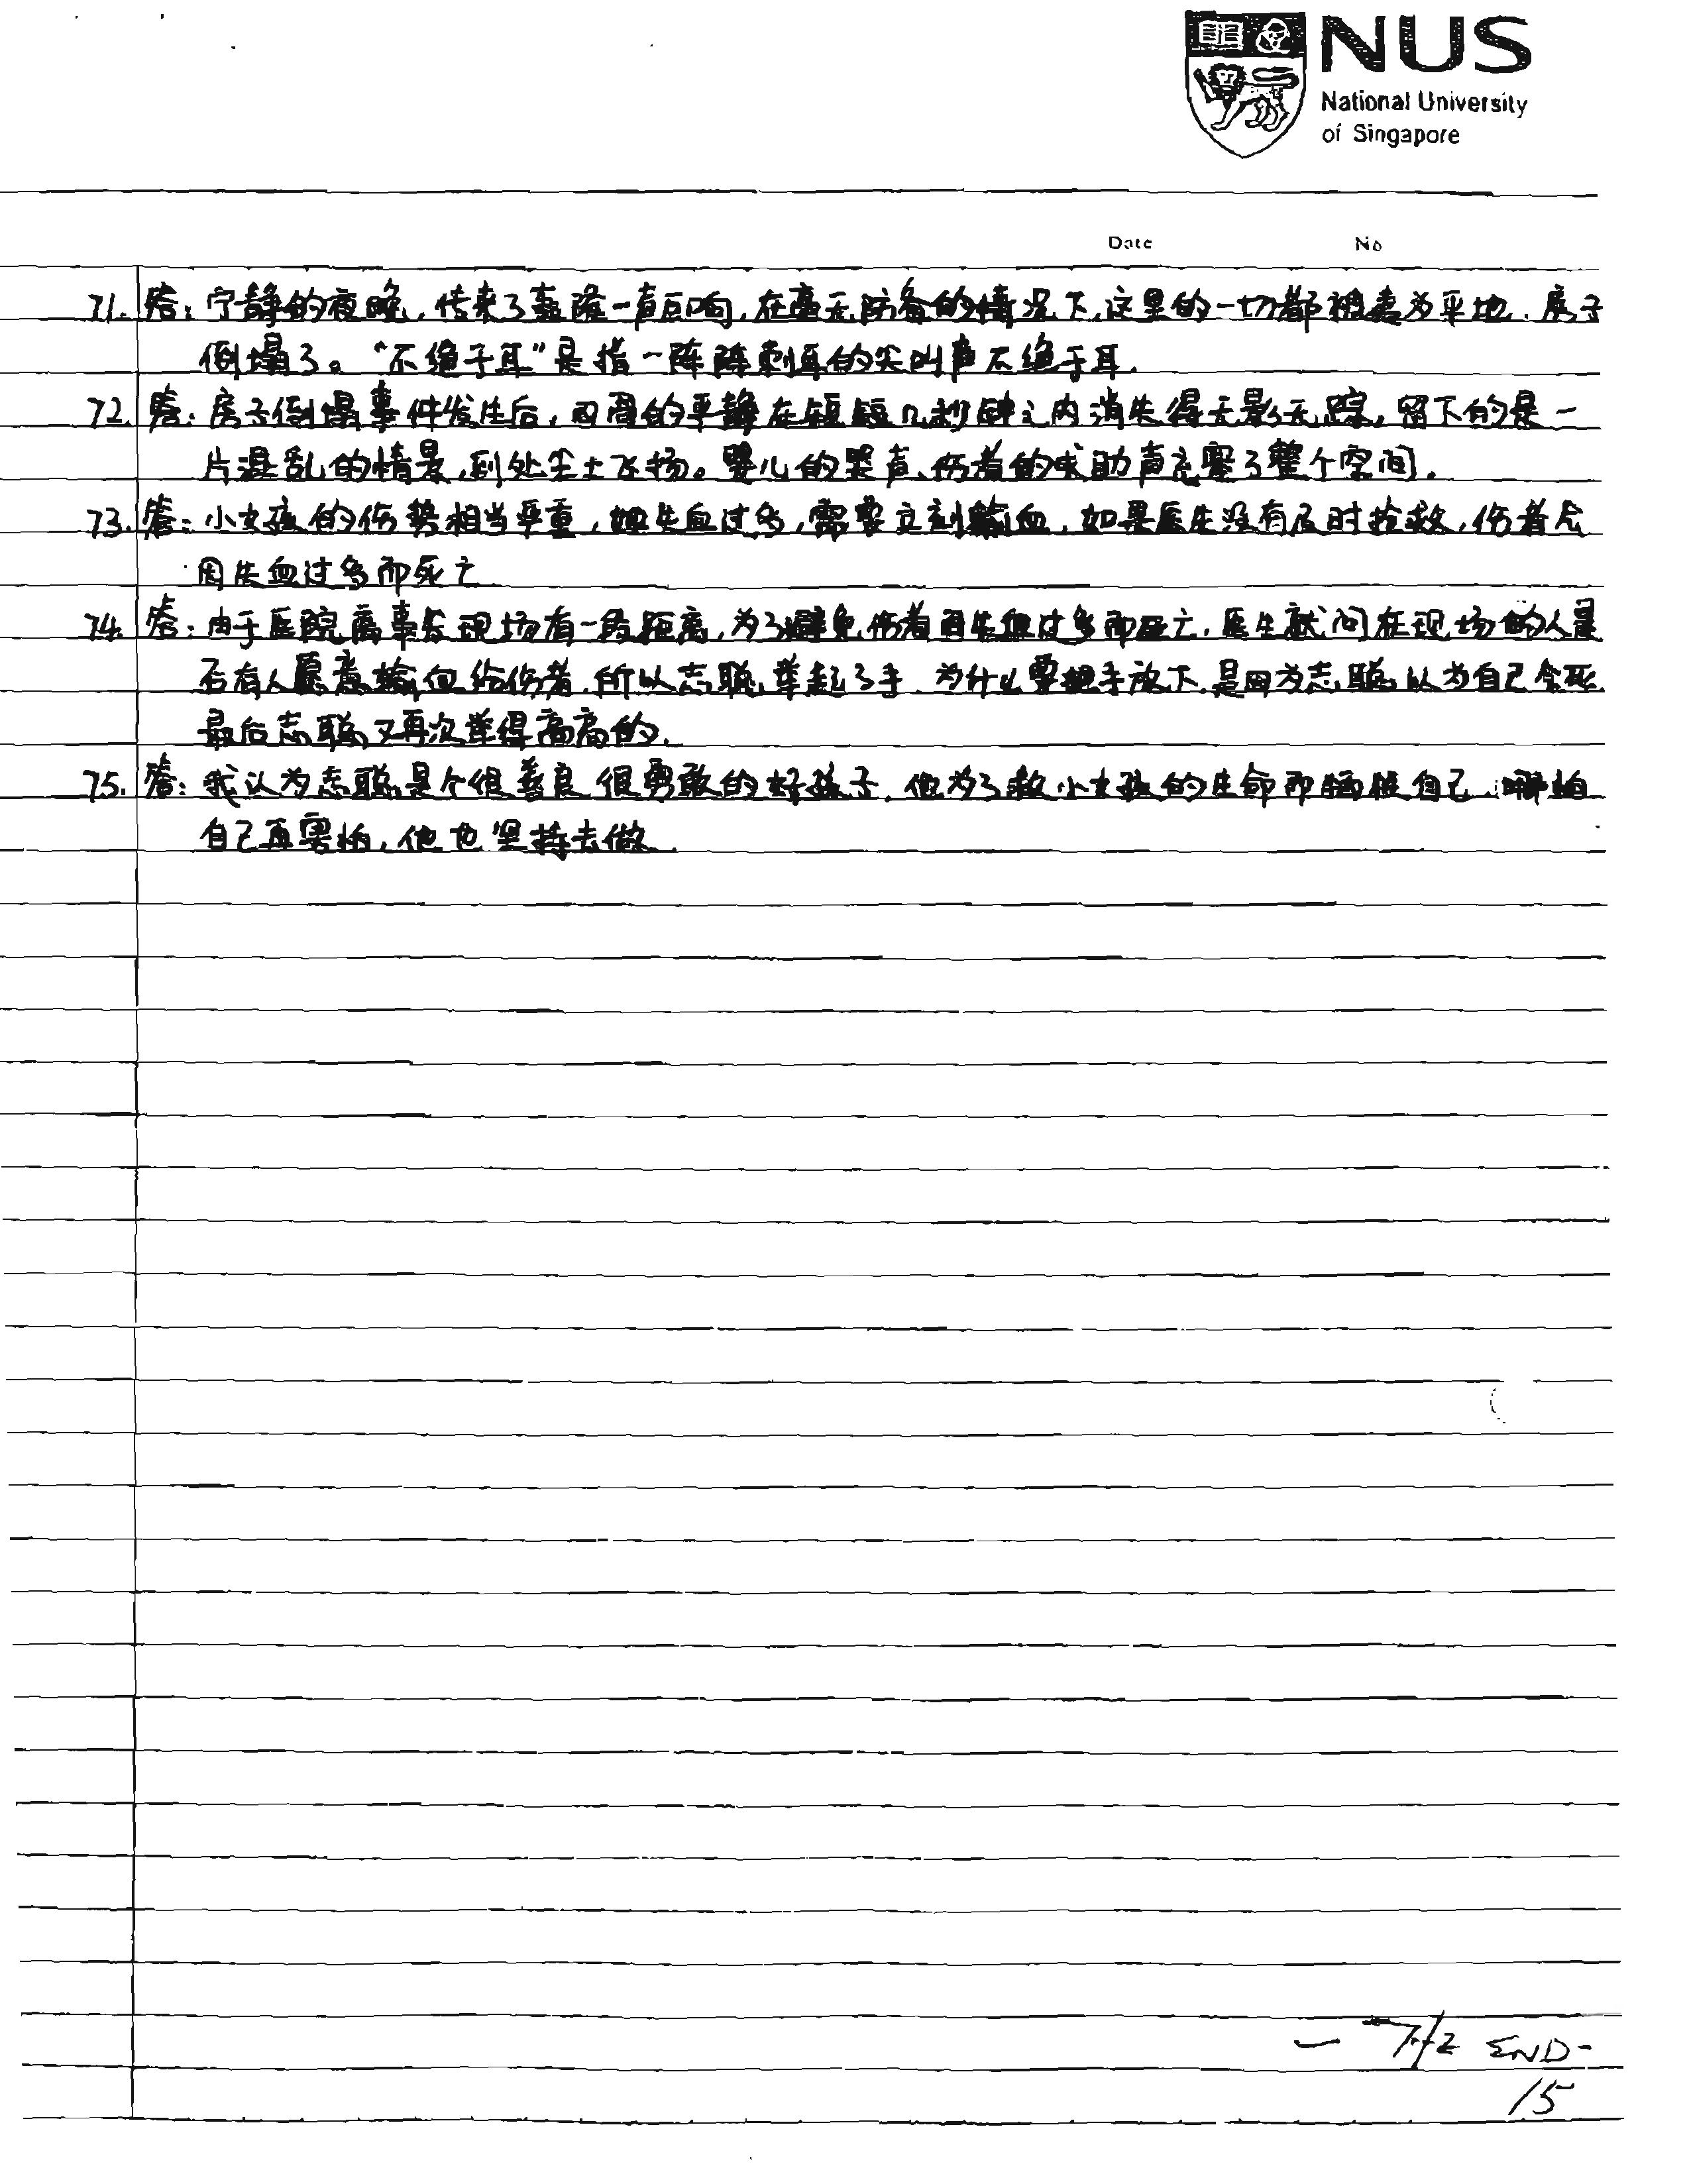 NUS
National University
of Singapore
Date No
71. 答：宁静的夜晚，传来了轰隆一声巨响，在毫无防备的情况下，这里的一切都被夷为平地，房子
倒塌了。“不绝于耳”是指一阵阵刺耳的尖叫声不绝于耳.
72. 答：房子倒塌事件发生后，四周的平静在短短几秒钟之内消失得无影无踪，留下的是一
片混乱的情景，到处尘土飞扬。婴儿的哭声、伤者的求助声充塞了整个空间.
73. 答：小女孩的伤势相当严重，她失血过多，需要立刻输血，如果医生没有及时抢救，伤者会
因失血过多而死亡
74. 答：由于医院离事发现场有一段距离，为了避免伤者因失血过多而死亡，医生就问在现场的人是
否有人愿意输血给伤者，所以志聪举起了手，为什么要把手放下，是因为志聪以为自己会死
最后志聪又再次举得高高的.
75. 答：我认为志聪是个很善良很勇敢的好孩子，他为了救小女孩的生命即牺牲自己，哪怕
自己再害怕，他也坚持去做.
END-
15